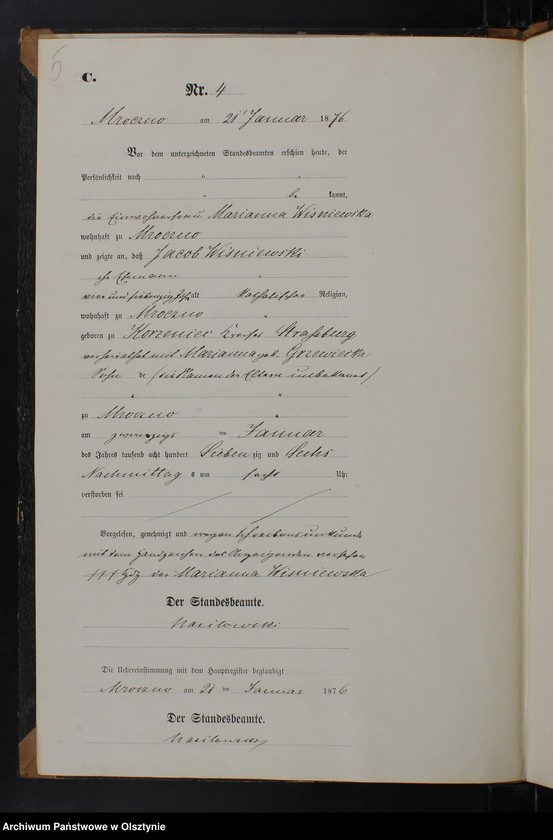 5
C.
Nr. 4
Mroczno am 21ᵗ Januar 1876
Vor dem unterzeichneten Standesbeamten erschien heute, der
Persönlichkeit nach
be kannt,
die Einwohnerfrau Marianna Wisniewska
wohnhaft zu Mroczno
und zeigte an, daß Jacob Wisniewski
ihr Ehemann
vier und siebenzig Jahr alt katholischer Religion,
wohnhaft zu Mroczno
geboren zu Korzeniec Kreises Straßburg
verheirathet mit Marianna geb. Grzewicka
Sohn de (die Namen der Eltern unbekannt)
zu Mroczno
am zwanzigs ten Januar
des Jahres tausend acht hundert Sieben zig und Sechs
Nachmittag s um sechs Uhr
verstorben sei
Vorgelesen, genehmigt und wegen Schreibensunkunde
mit dem Handzeichen der Anzeigenden versehen
††† Hdz der Marianna Wisniewska
Der Standesbeamte.
Die Uebereinstimmung mit dem Hauptregister beglaubigt
Mroczno am 21 ten Januar 1876
Der Standesbeamte.
Archiwum Państwowe w Olsztynie